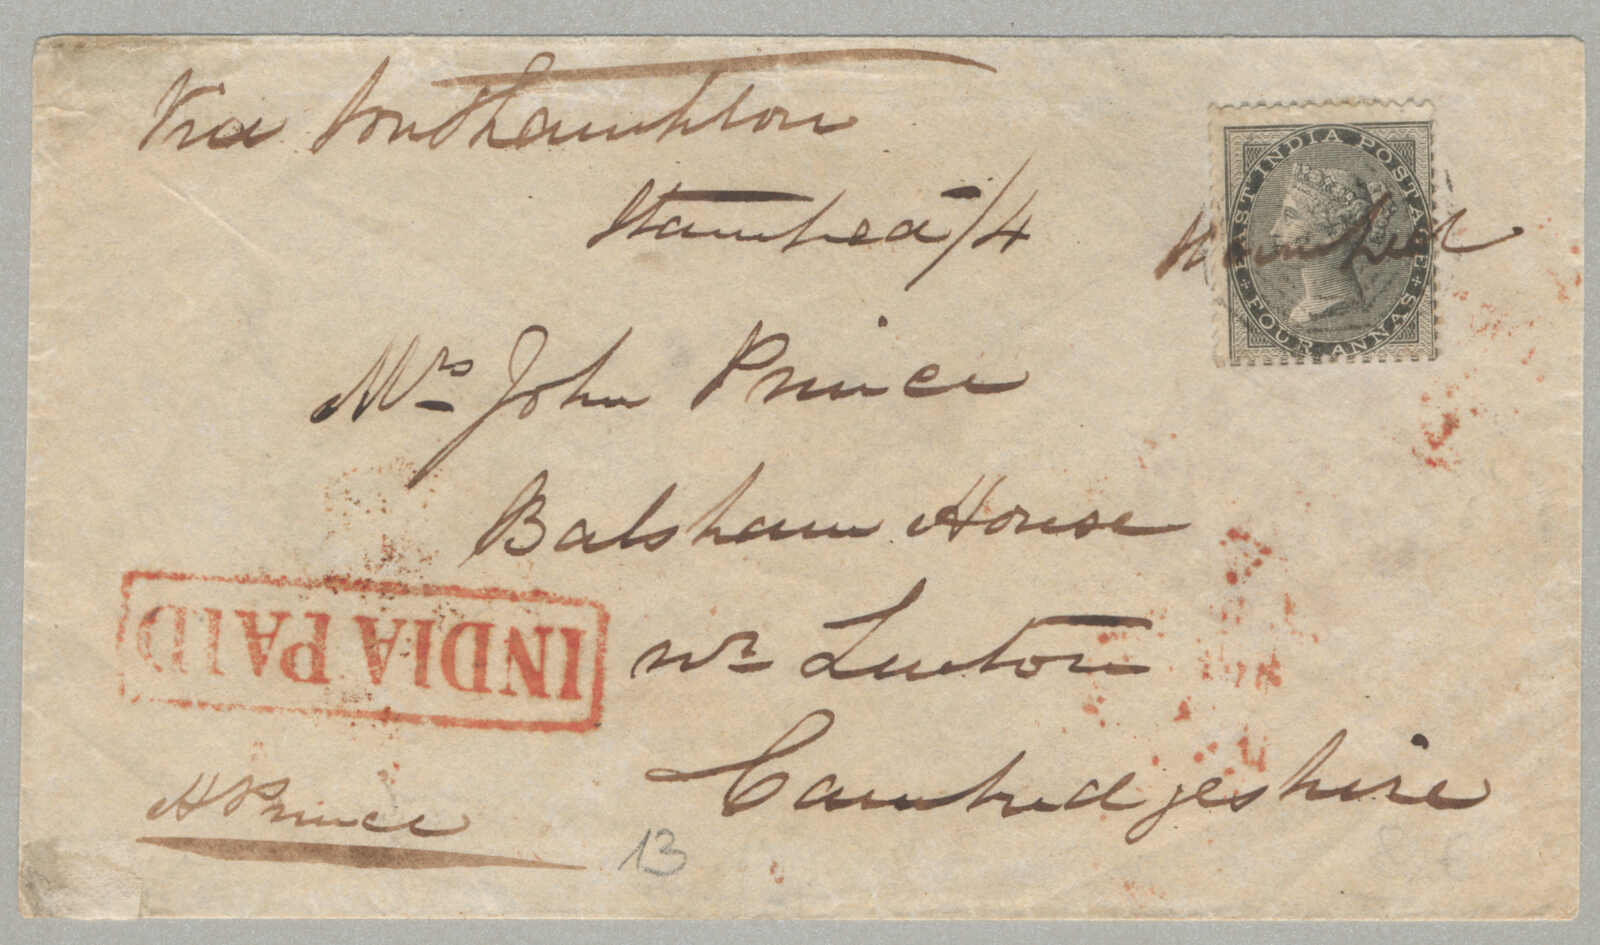 Via Southampton
Stamped /4
Stamped
EAST INDIA POSTAGE
FOUR ANNAS
Mrs John Prince
Balsham House
nr Linton
Cambridgeshire
INDIA PAID
H Prince
13